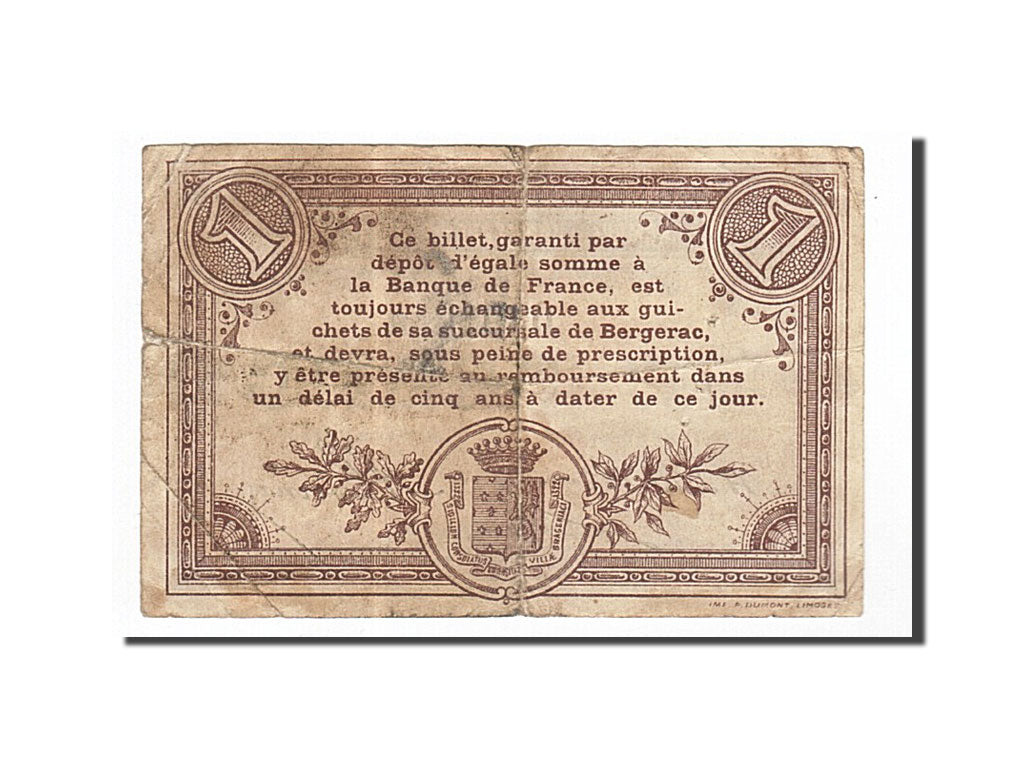 1
1
Ce billet, garanti par
dépôt d'égale somme à
la Banque de France, est
toujours échangeable aux gui-
chets de sa succursale de Bergerac,
et devra, sous peine de prescription,
y être présenté au remboursement dans
un délai de cinq ans à dater de ce jour.
SIGILLUM CONSULATUS VILLÆ
IMP. P. DUMONT, LIMOGES